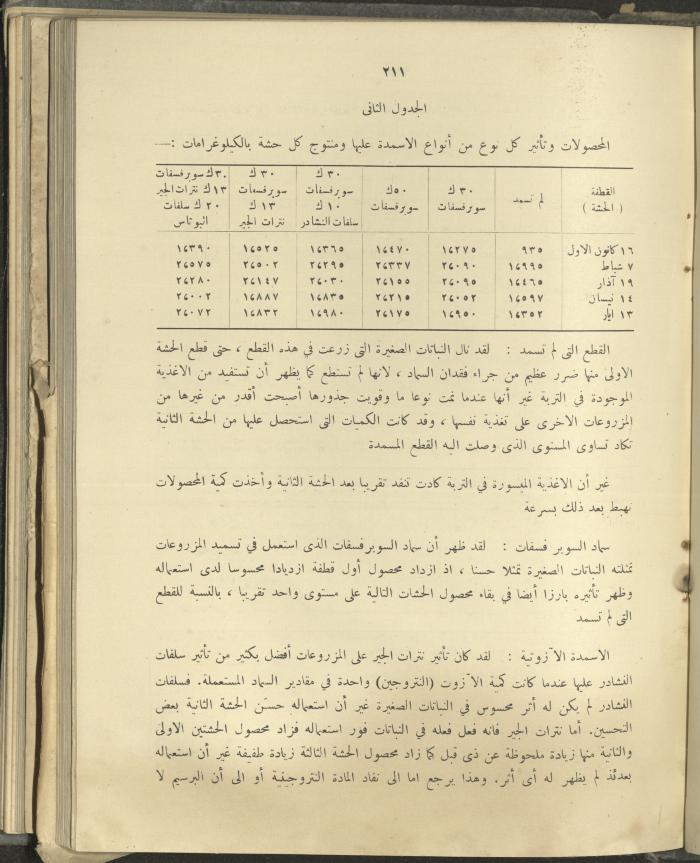 ٢١١
الجدول الثانى
المحصولات وتأثير كل نوع من أنواع الاسمدة عليها ومنتوج كل حشة بالكيلوغرامات :—
القطفة ( الحشة ) | لم تسمد | ٣٠ ك سوبرفسفات | ٥٠ ك سوبرفسفات | ٣٠ ك سوبرفسفات ١٠ ك سلفات النشادر | ٣٠ ك سوبرفسفات ١٣ ك نترات الجير | ٣٠ ك سوبرفسفات ١٣ ك نترات الجير ٢٠ ك سلفات البوتاس
١٦ كانون الاول | ٩٣٥ | ١٬٢٧٥ | ١٬٤٧٠ | ١٬٣٦٥ | ١٬٥٢٥ | ١٬٣٩٠
٧ شباط | ١٬٩٩٥ | ٢٬٠٩٠ | ٢٬٣٣٧ | ٢٬٢٩٥ | ٢٬٥٠٢ | ٢٬٥٧٥
١٩ آذار | ١٬٤٦٥ | ٢٬٠٩٥ | ٢٬١٥٥ | ٢٬٠٣٠ | ٢٬١٤٧ | ٢٬٢٨٠
١٤ نيسان | ١٬٥٩٧ | ٢٬٠٥٢ | ٢٬٢١٥ | ١٬٨٣٥ | ١٬٨٨٧ | ٢٬٠٠٢
١٣ ايار | ١٬٣٥٢ | ١٬٩٥٠ | ٢٬١٧٥ | ١٬٩٨٠ | ١٬٨٣٢ | ٢٬٠٧٢
القطع التى لم تسمد : لقد نال النباتات الصغيرة التى زرعت في هذه القطع ، حتى قطع الحشة
الاولى منها ضرر عظيم من جراء فقدان السماد ، لانها لم تستطع كما يظهر أن تستفيد من الاغذية
الموجودة في التربة غير أنها عندما نمت نوعا ما وقويت جذورها أصبحت أقدر من غيرها من
المزروعات الاخرى على تغذية نفسها ، وقد كانت الكميات التى استحصل عليها من الحشة الثانية
تكاد تساوى المستوى الذى وصلت اليه القطع المسمدة
غير أن الاغذية الميسورة في التربة كادت تنفد تقريبا بعد الحشة الثانية وأخذت كمية المحصولات
تهبط بعد ذلك بسرعة
سماد السوبر فسفات : لقد ظهر أن سماد السوبرفسفات الذى استعمل في تسميد المزروعات
تمثلته النباتات الصغيرة تمثلا حسنا ، اذ ازداد محصول أول قطفة ازديادا محسوسا لدى استعماله
وظهر تأثيره بارزا أيضا في بقاء محصول الحشات التالية على مستوى واحد تقريبا ، بالنسبة للقطع
التى لم تسمد
الاسمدة الآزوتية : لقد كان تأثير نترات الجير على المزروعات أفضل بكثير من تأثير سلفات
النشادر عليها عندما كانت كمية الآزوت (النتروجين) واحدة في مقادير السماد المستعملة. فسلفات
النشادر لم يكن له أثر محسوس في النباتات الصغيرة غير أن استعماله حسّن الحشة الثانية بعض
التحسين. أما نترات الجير فانه فعل فعله في النباتات فور استعماله فزاد محصول الحشتين الاولى
والثانية منها زيادة ملحوظة عن ذى قبل كما زاد محصول الحشة الثالثة زيادة طفيفة غير أن استعماله
بعدئذ لم يظهر له أى أثر. وهذا يرجع اما الى نفاد المادة النتروجينية أو الى أن البرسيم لا